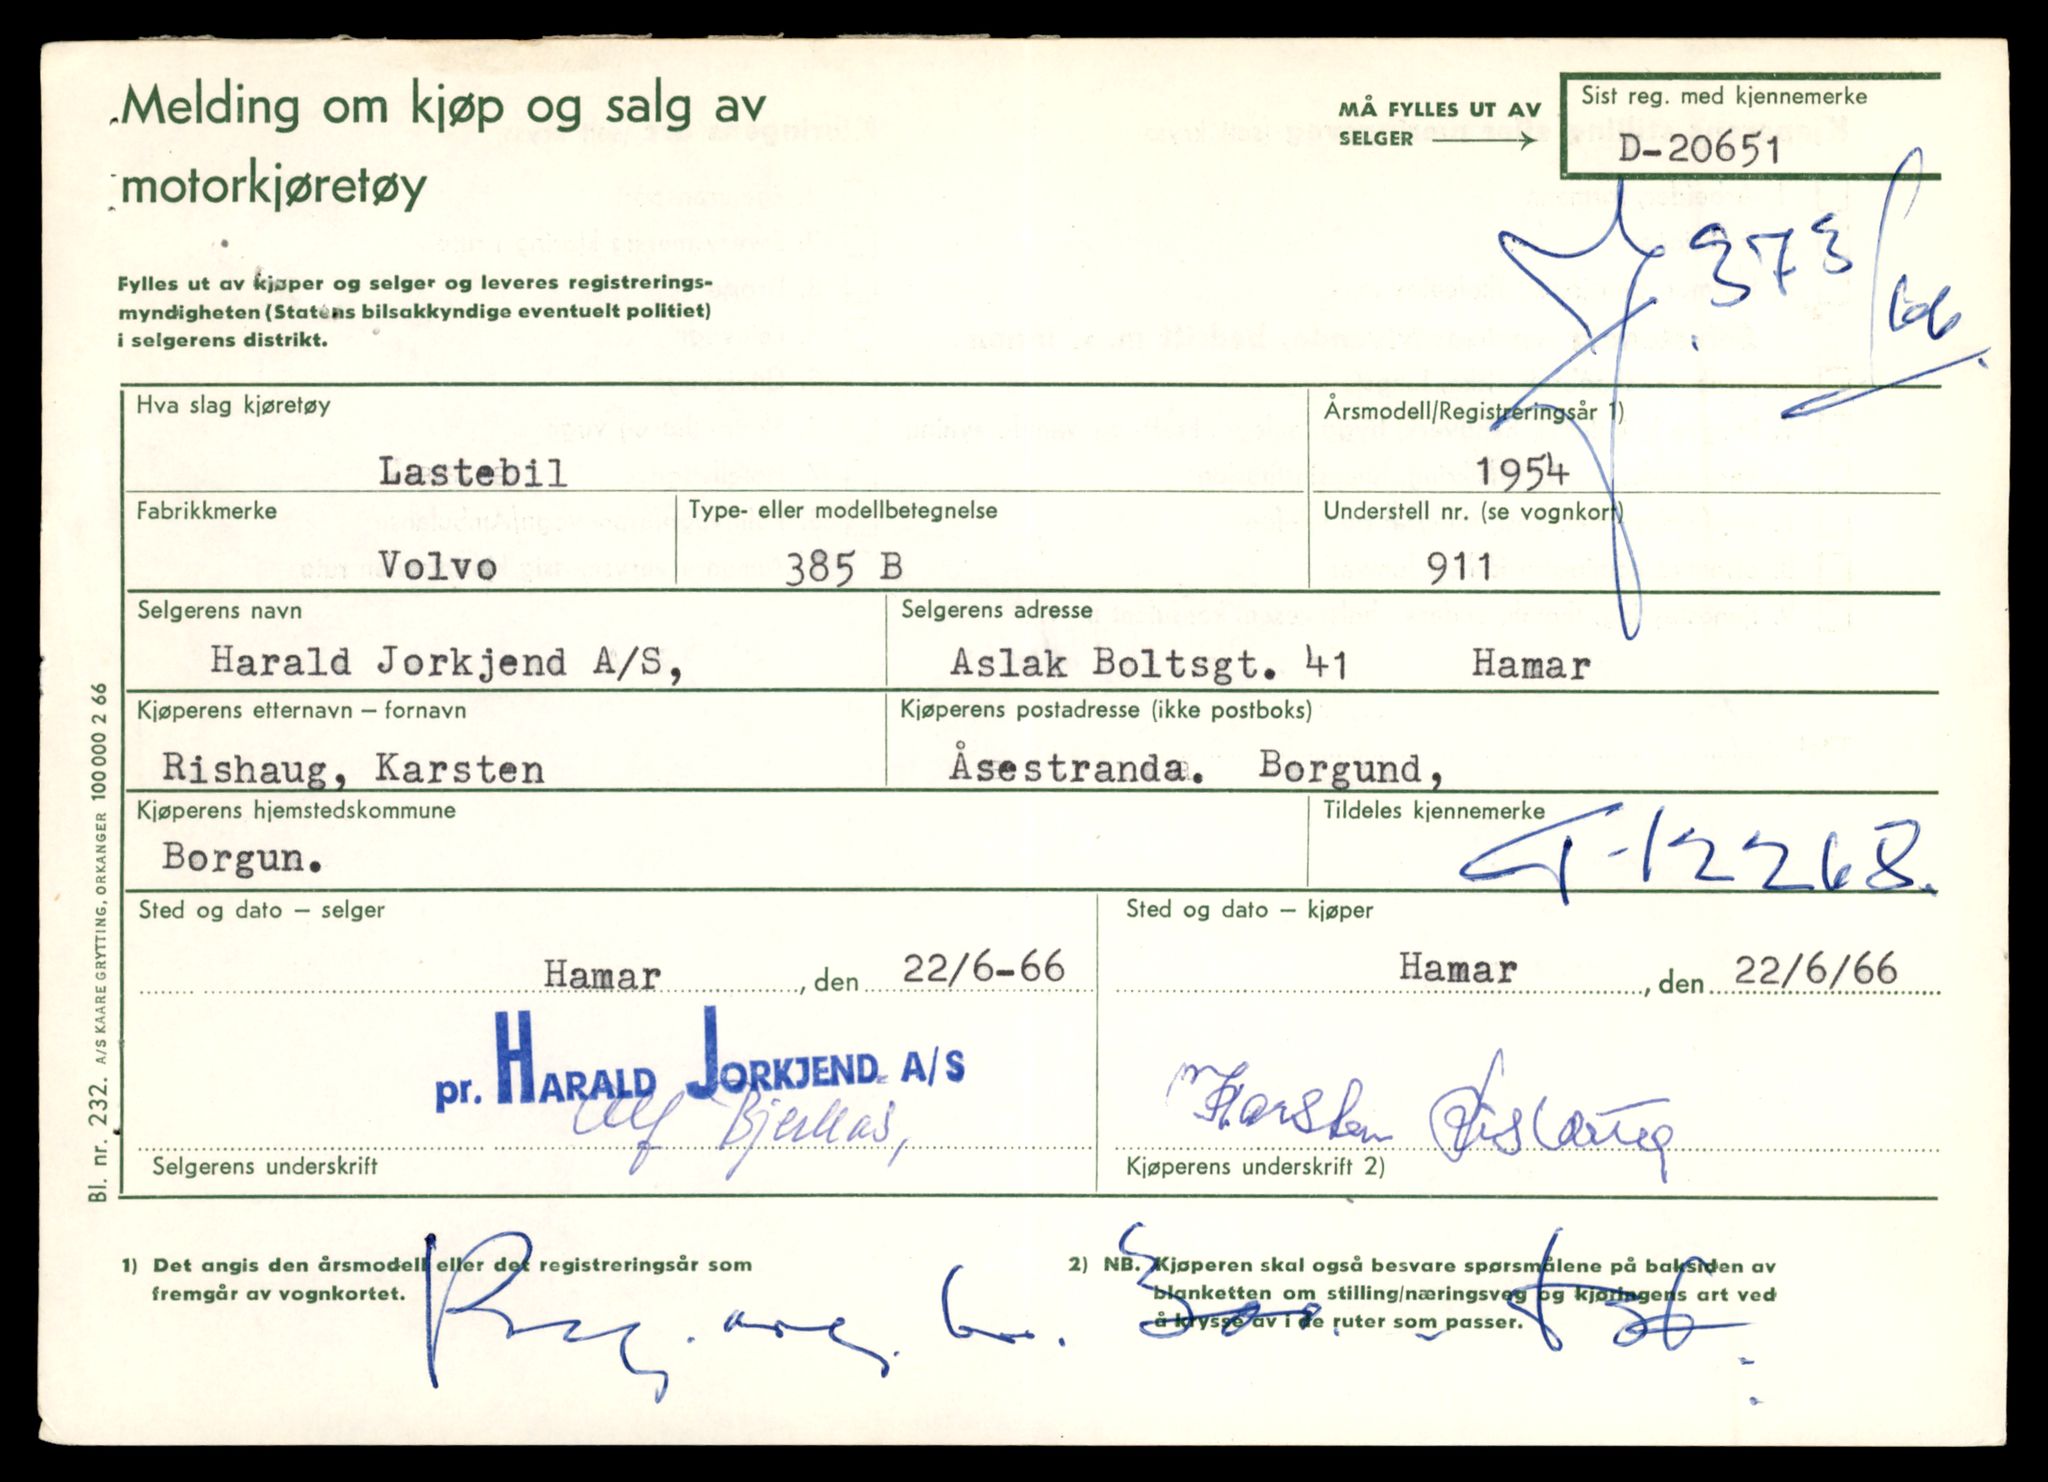 Melding om kjøp og salg av
motorkjøretøy
MÅ FYLLES UT AV
SELGER
Sist reg. med kjennemerke
D-20651
373/66.
Fylles ut av kjøper og selger og leveres registrerings-
myndigheten (Statens bilsakkyndige eventuelt politiet)
i selgerens distrikt.
Hva slag kjøretøy
Lastebil
Årsmodell/Registreringsår 1)
1954
Fabrikkmerke
Volvo
Type- eller modellbetegnelse
385 B
Understell nr. (se vognkort)
911
Selgerens navn
Harald Jorkjend A/S,
Selgerens adresse
Aslak Boltsgt. 41 Hamar
Kjøperens etternavn – fornavn
Rishaug, Karsten
Kjøperens postadresse (ikke postboks)
Åsestranda. Borgund,
Kjøperens hjemstedskommune
Borgun.
Tildeles kjennemerke
T-12268.
Sted og dato – selger
Hamar, den 22/6-66
Sted og dato – kjøper
Hamar, den 22/6/66
pr. HARALD JORKJEND A/S
Selgerens underskrift
Karsten Rishaug
Kjøperens underskrift 2)
1) Det angis den årsmodell eller det registreringsår som
fremgår av vognkortet.
2) NB. Kjøperen skal også besvare spørsmålene på baksiden av
blanketten om stilling/næringsveg og kjøringens art ved
å krysse av i de ruter som passer.
Bl. nr. 232. A/S KAARE GRYTTING, ORKANGER 100 000 2 66